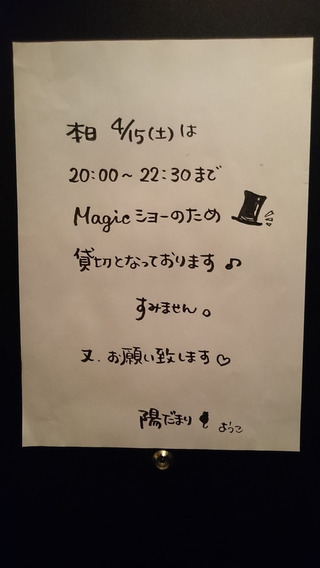 本日 4/15(土)は
20:00～22:30まで
Magicショーのため
貸切となっております♪
すみません。
又、お願い致します♡
陽だまり ようこ